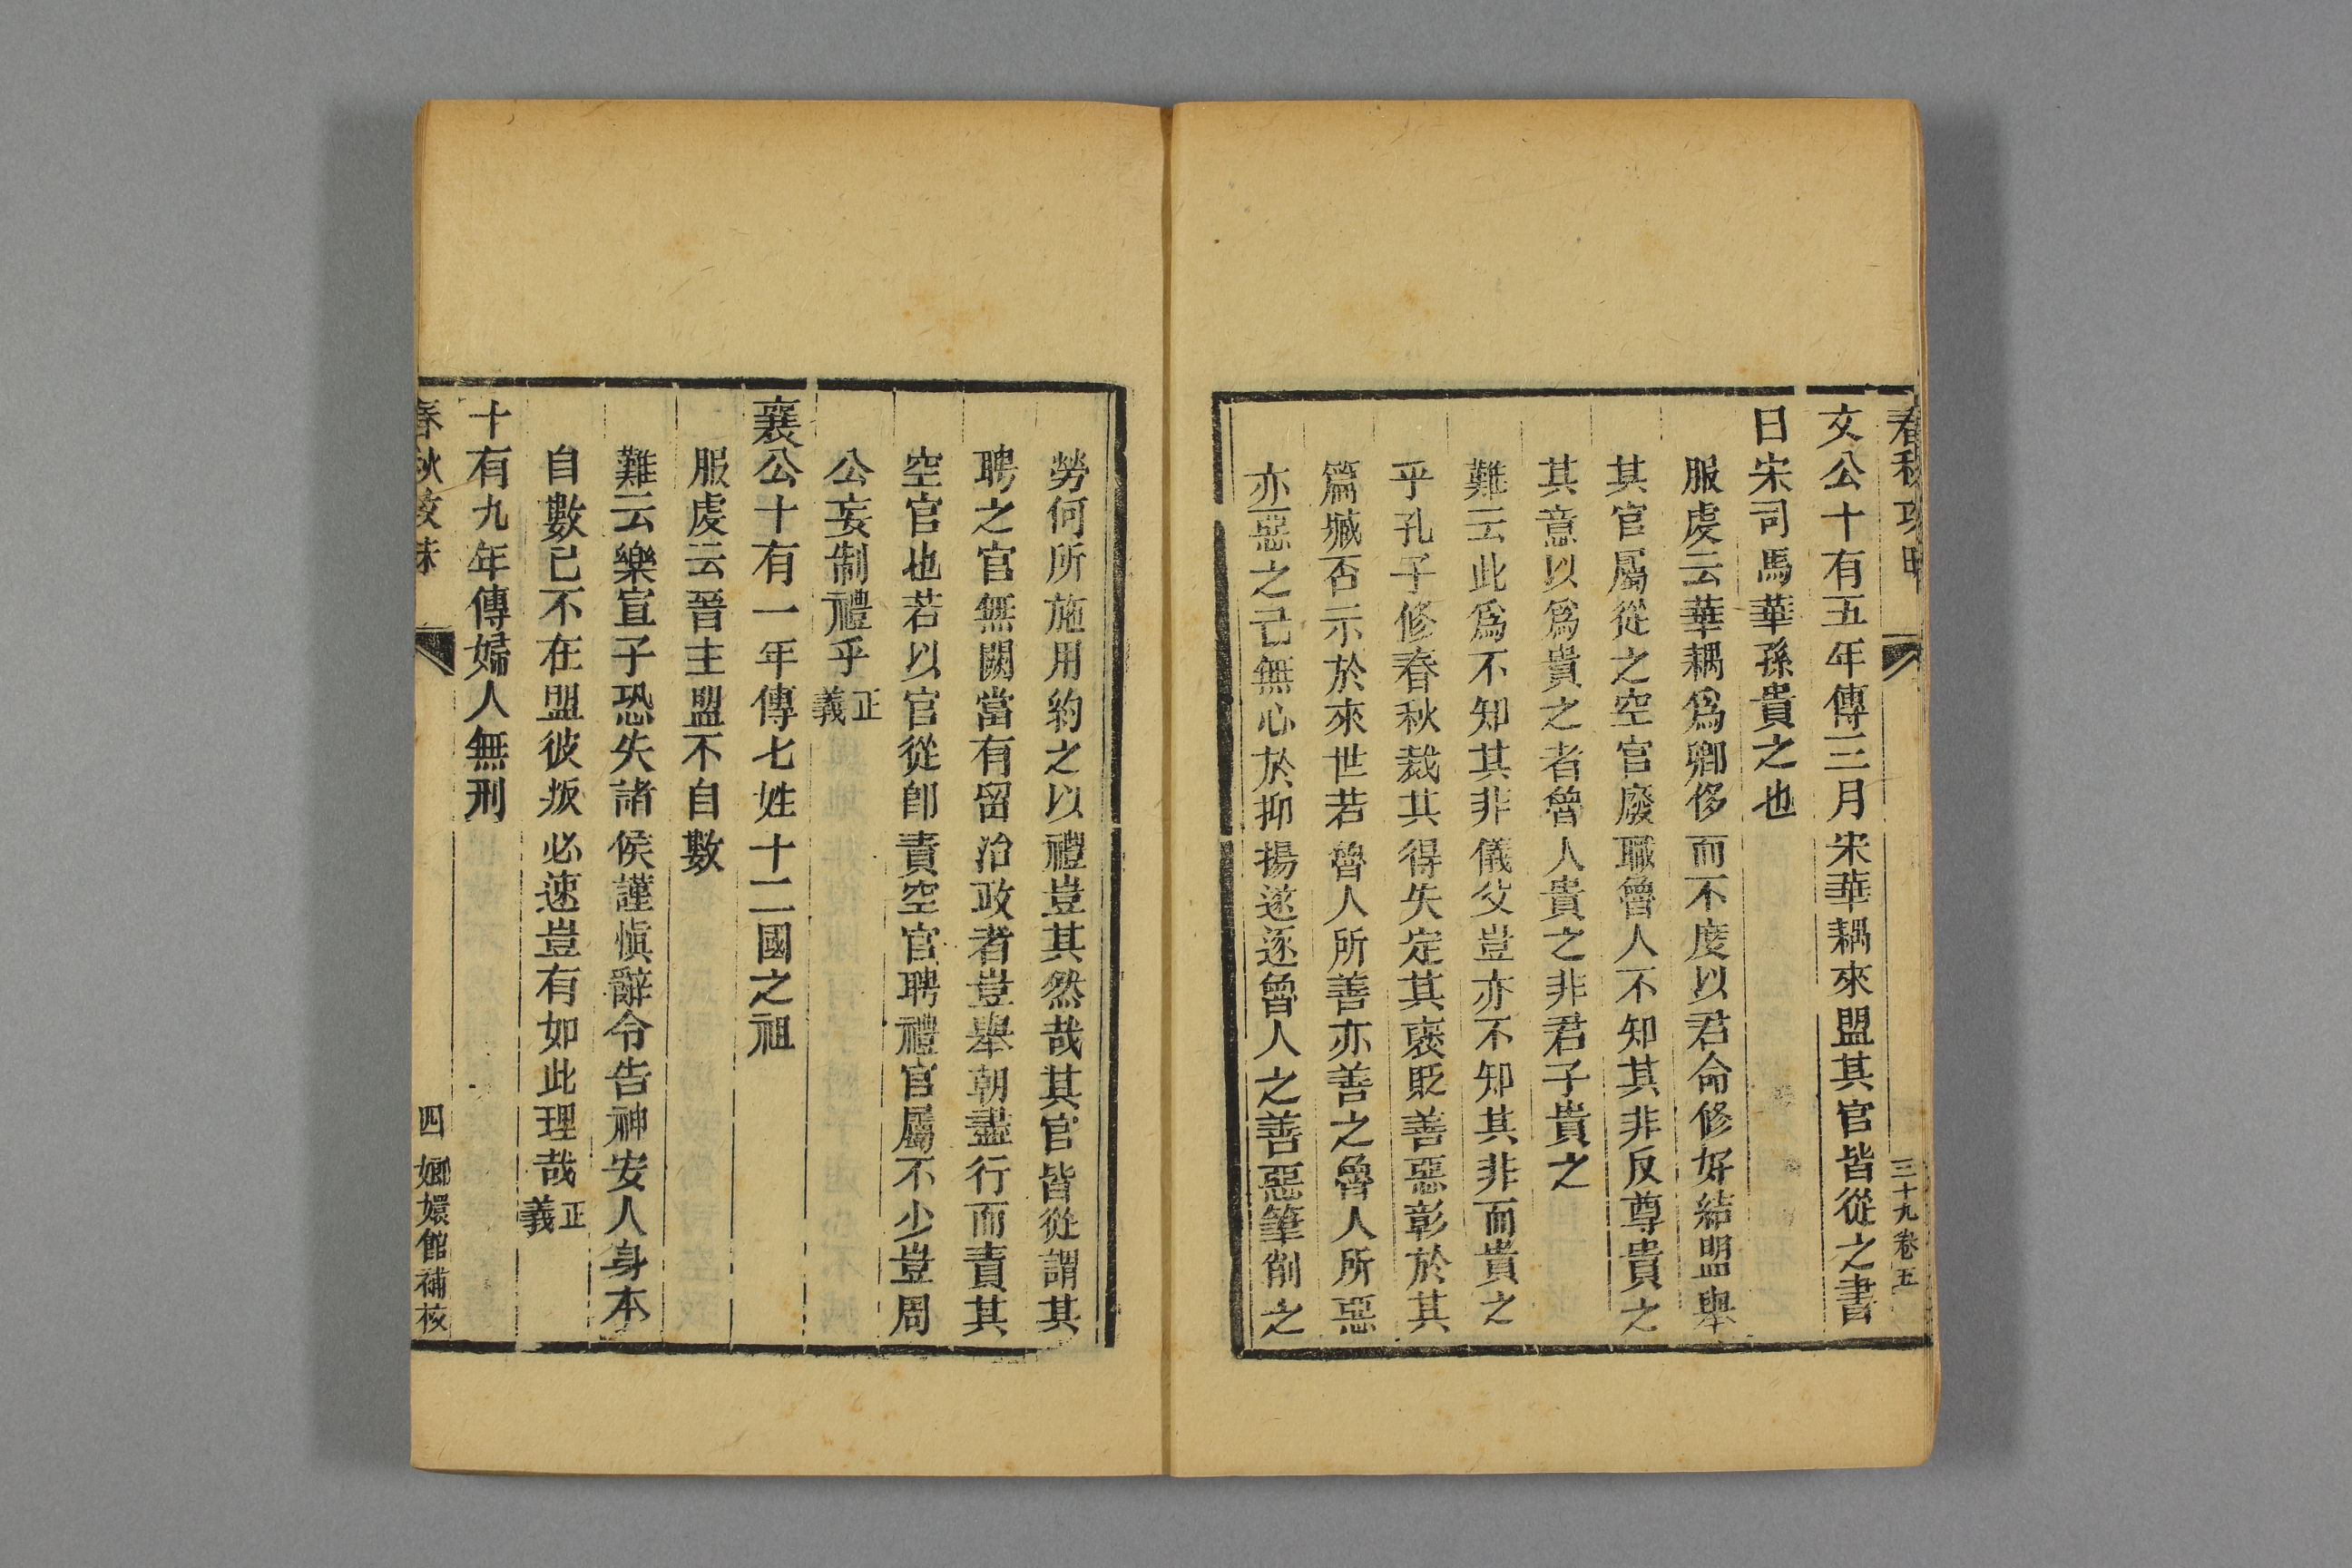 春秋攻昧
三十九卷五
文公十有五年傳三月宋華耦來盟其官皆從之書
曰宋司馬華孫貴之也
服虔云華耦爲卿侈而不度以君命修好結盟舉
其官屬從之空官廢職魯人不知其非反尊貴之
其意以爲貴之者魯人貴之非君子貴之
難云此爲不知其非儀父豈亦不知其非而貴之
乎孔子修春秋裁其得失定其褒貶善惡彰於其
篇臧否示於來世若魯人所善亦善之魯人所惡
亦惡之己無心於抑揚遂逐魯人之善惡筆削之
勞何所施用約之以禮豈其然哉其官皆從謂其
聘之官無闕當有留治政者豈舉朝盡行而責其
空官也若以官從卽責空官聘禮官屬不少豈周
公妄制禮乎正義
襄公十有一年傳七姓十二國之祖
服虔云晉主盟不自數
難云樂宣子恐失諸侯謹愼辭令告神安人身本
自數已不在盟彼叛必速豈有如此理哉正義
十有九年傳婦人無刑
春秋攻昧
四
嫏嬛館補校